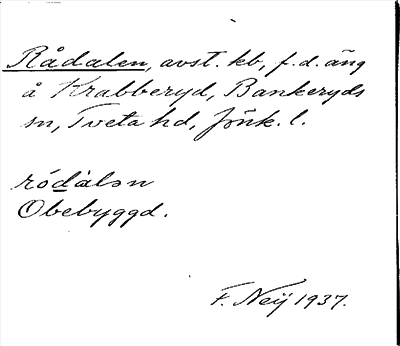 Rådalen, avst. kb, f.d. äng
å Krabberyd, Bankeryds
sn, Tveta hd, Jönk. l.
ródàlən
Obebyggd.
F. Neij 1937.